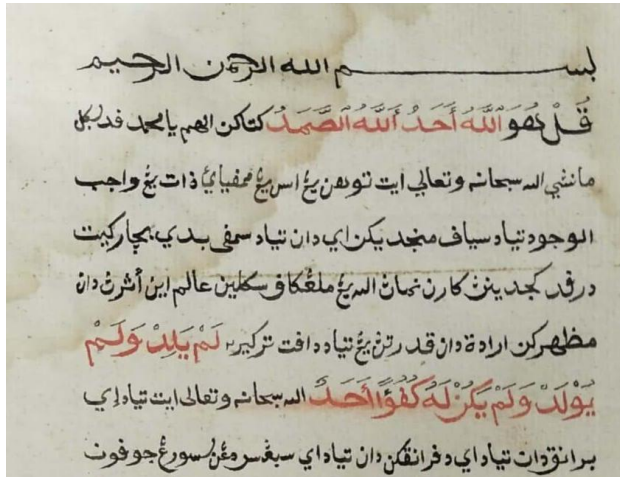 بســـــــــــم الله الرحمن الرحيم
قُلْ هُوَ اللَّهُ أَحَدٌ أَللَّهُ الصَّمَدُ كتاكن اولهم يا محمد فد سكل
مانسي الله سبحانه وتعالى ايت توهن يڠ اس يڠ ممفياءي ذات يڠ واجب
الوجود تياد سياف منجديكن اي دان تياد سمفي بدي بچار كيت
درفد كجدينڽ كارن نمان الله يڠ ملڠكاف سكلين عالم اين أثرڽ دان
مظهركن ارادة دان قدرتڽ يڠ تياد دافت تركير٢ لَمْ يَلِدْ وَلَمْ
يُوْلَدْ وَلَمْ يَكُنْ لَهُ كُفُوًا أَحَدٌ الله سبحانه وتعالى ايت تياد اي
برانق دان تياد اي دفرانقكن دان تياد اي سبڠس دڠن سسورڠ جوفون